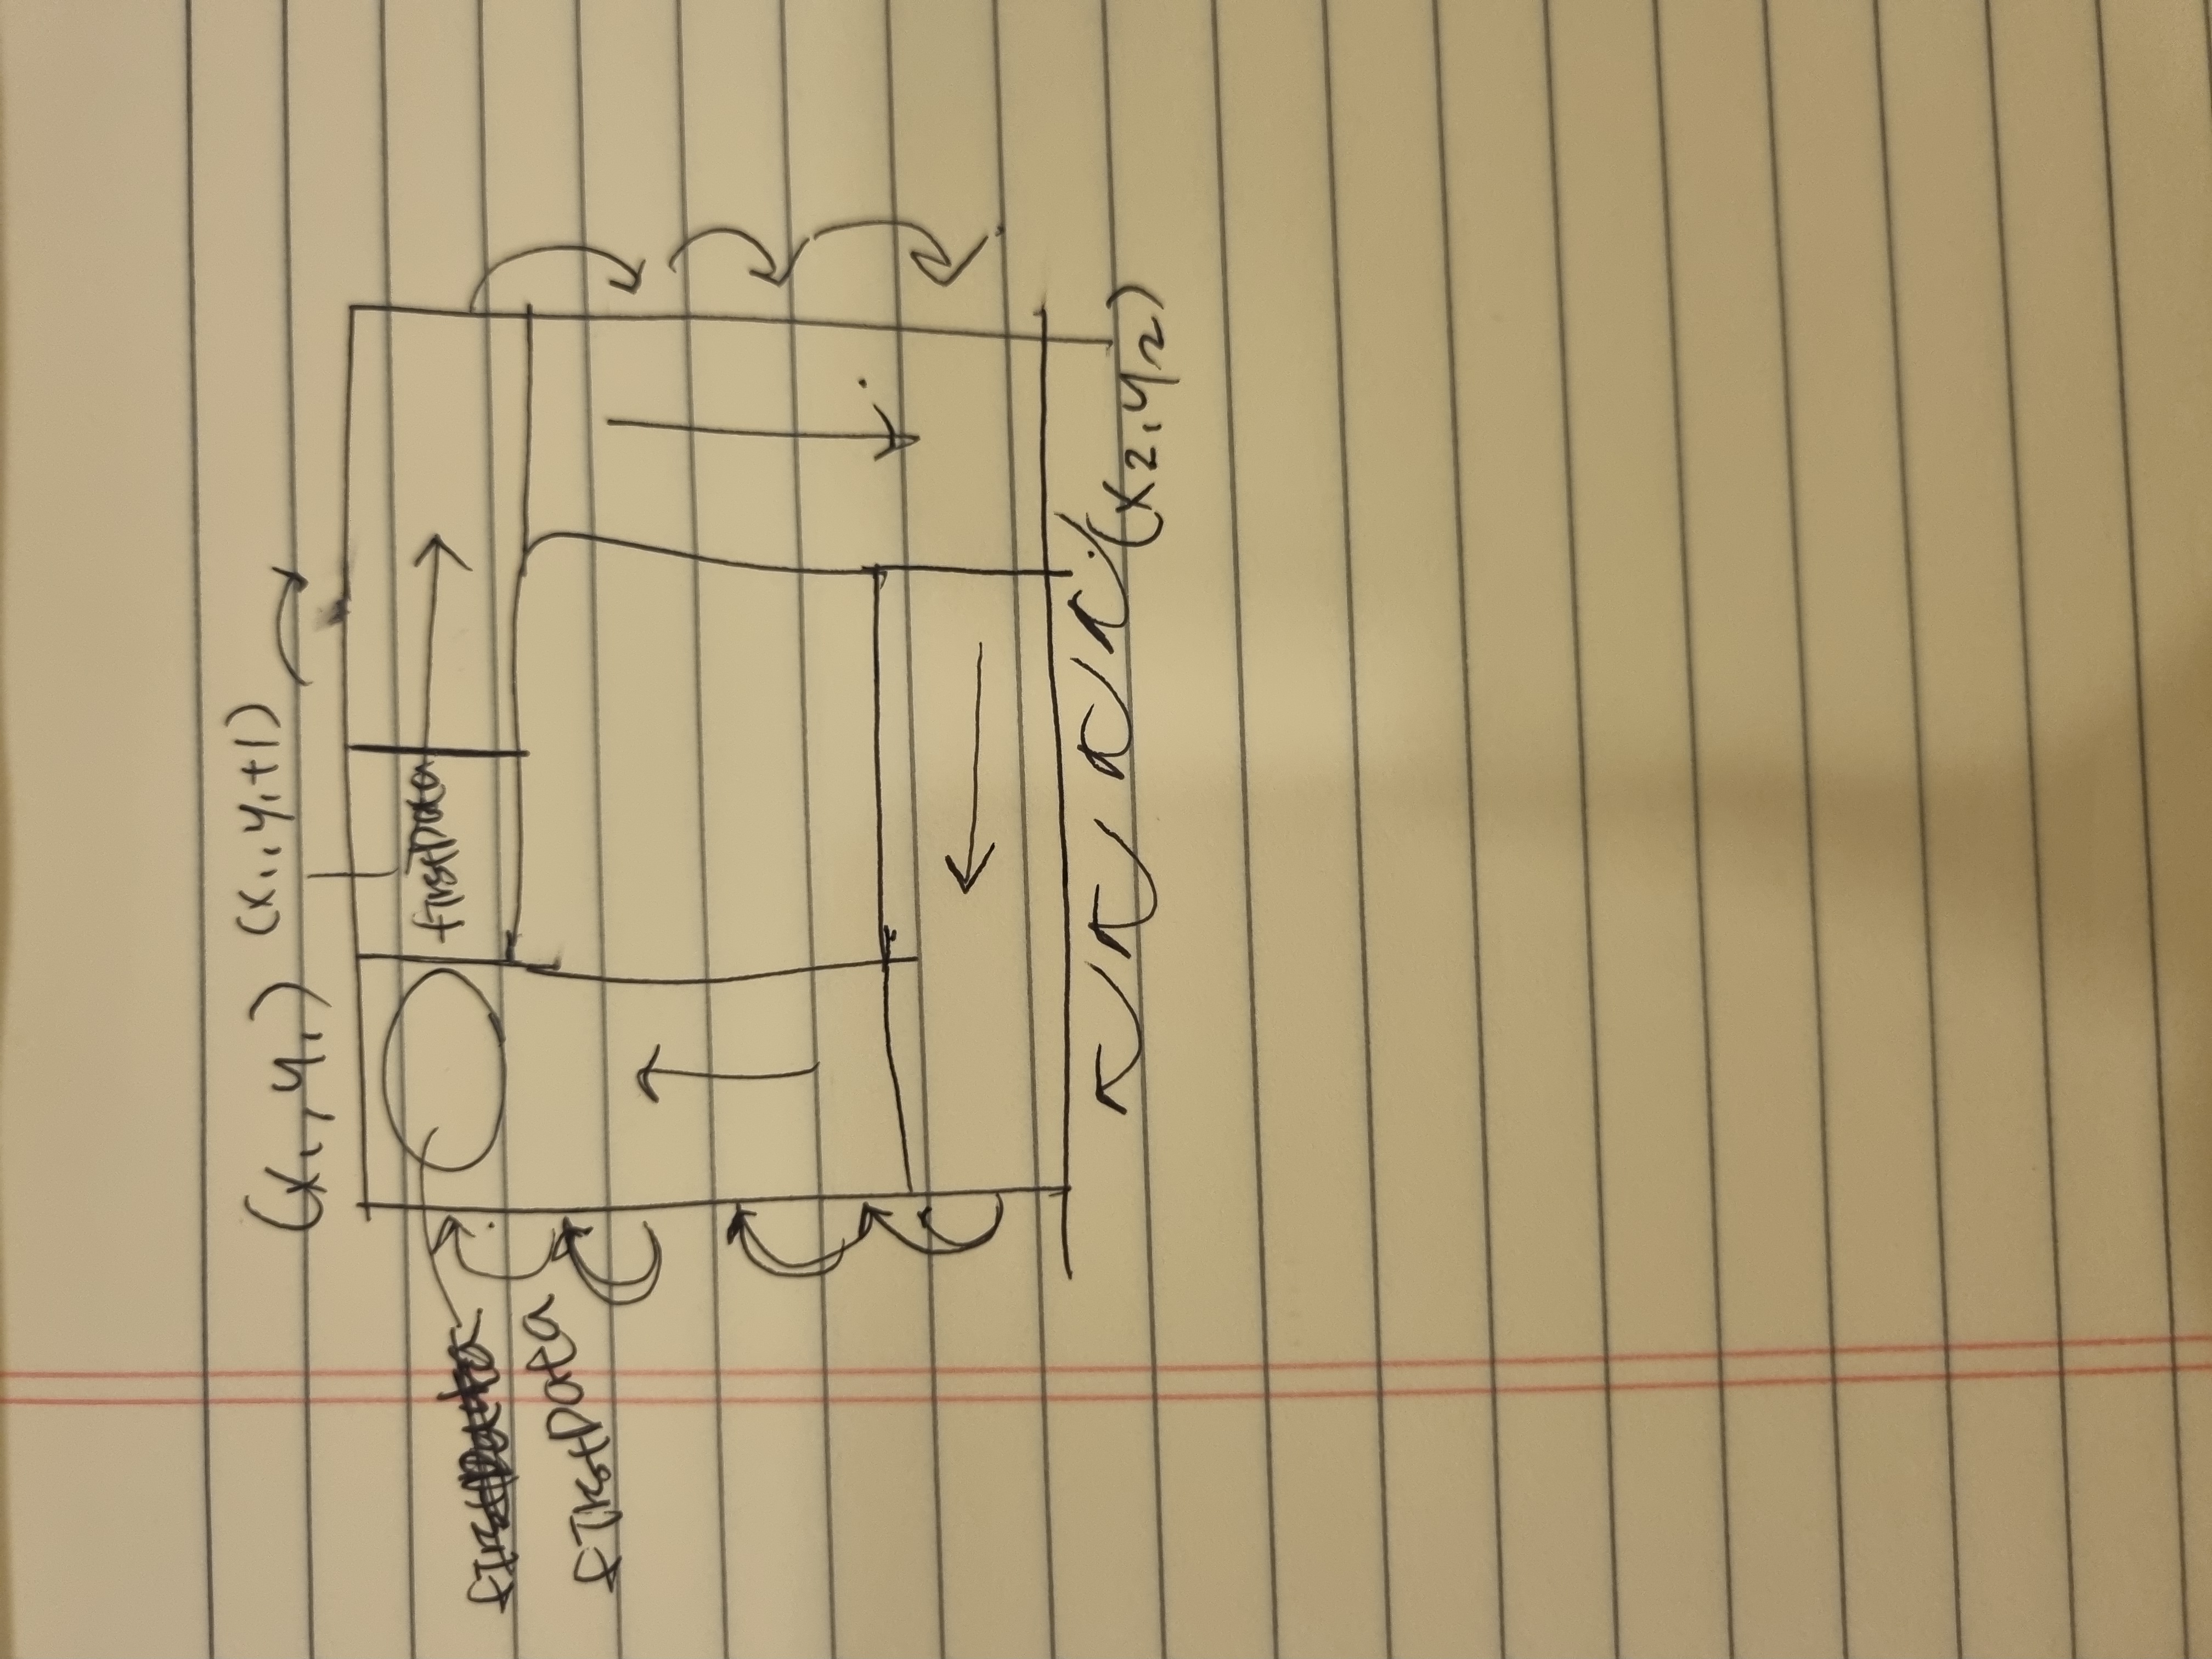 (x1, y1) (x1, y1+1)
firstData
firstData
firstData
(x2, y2)